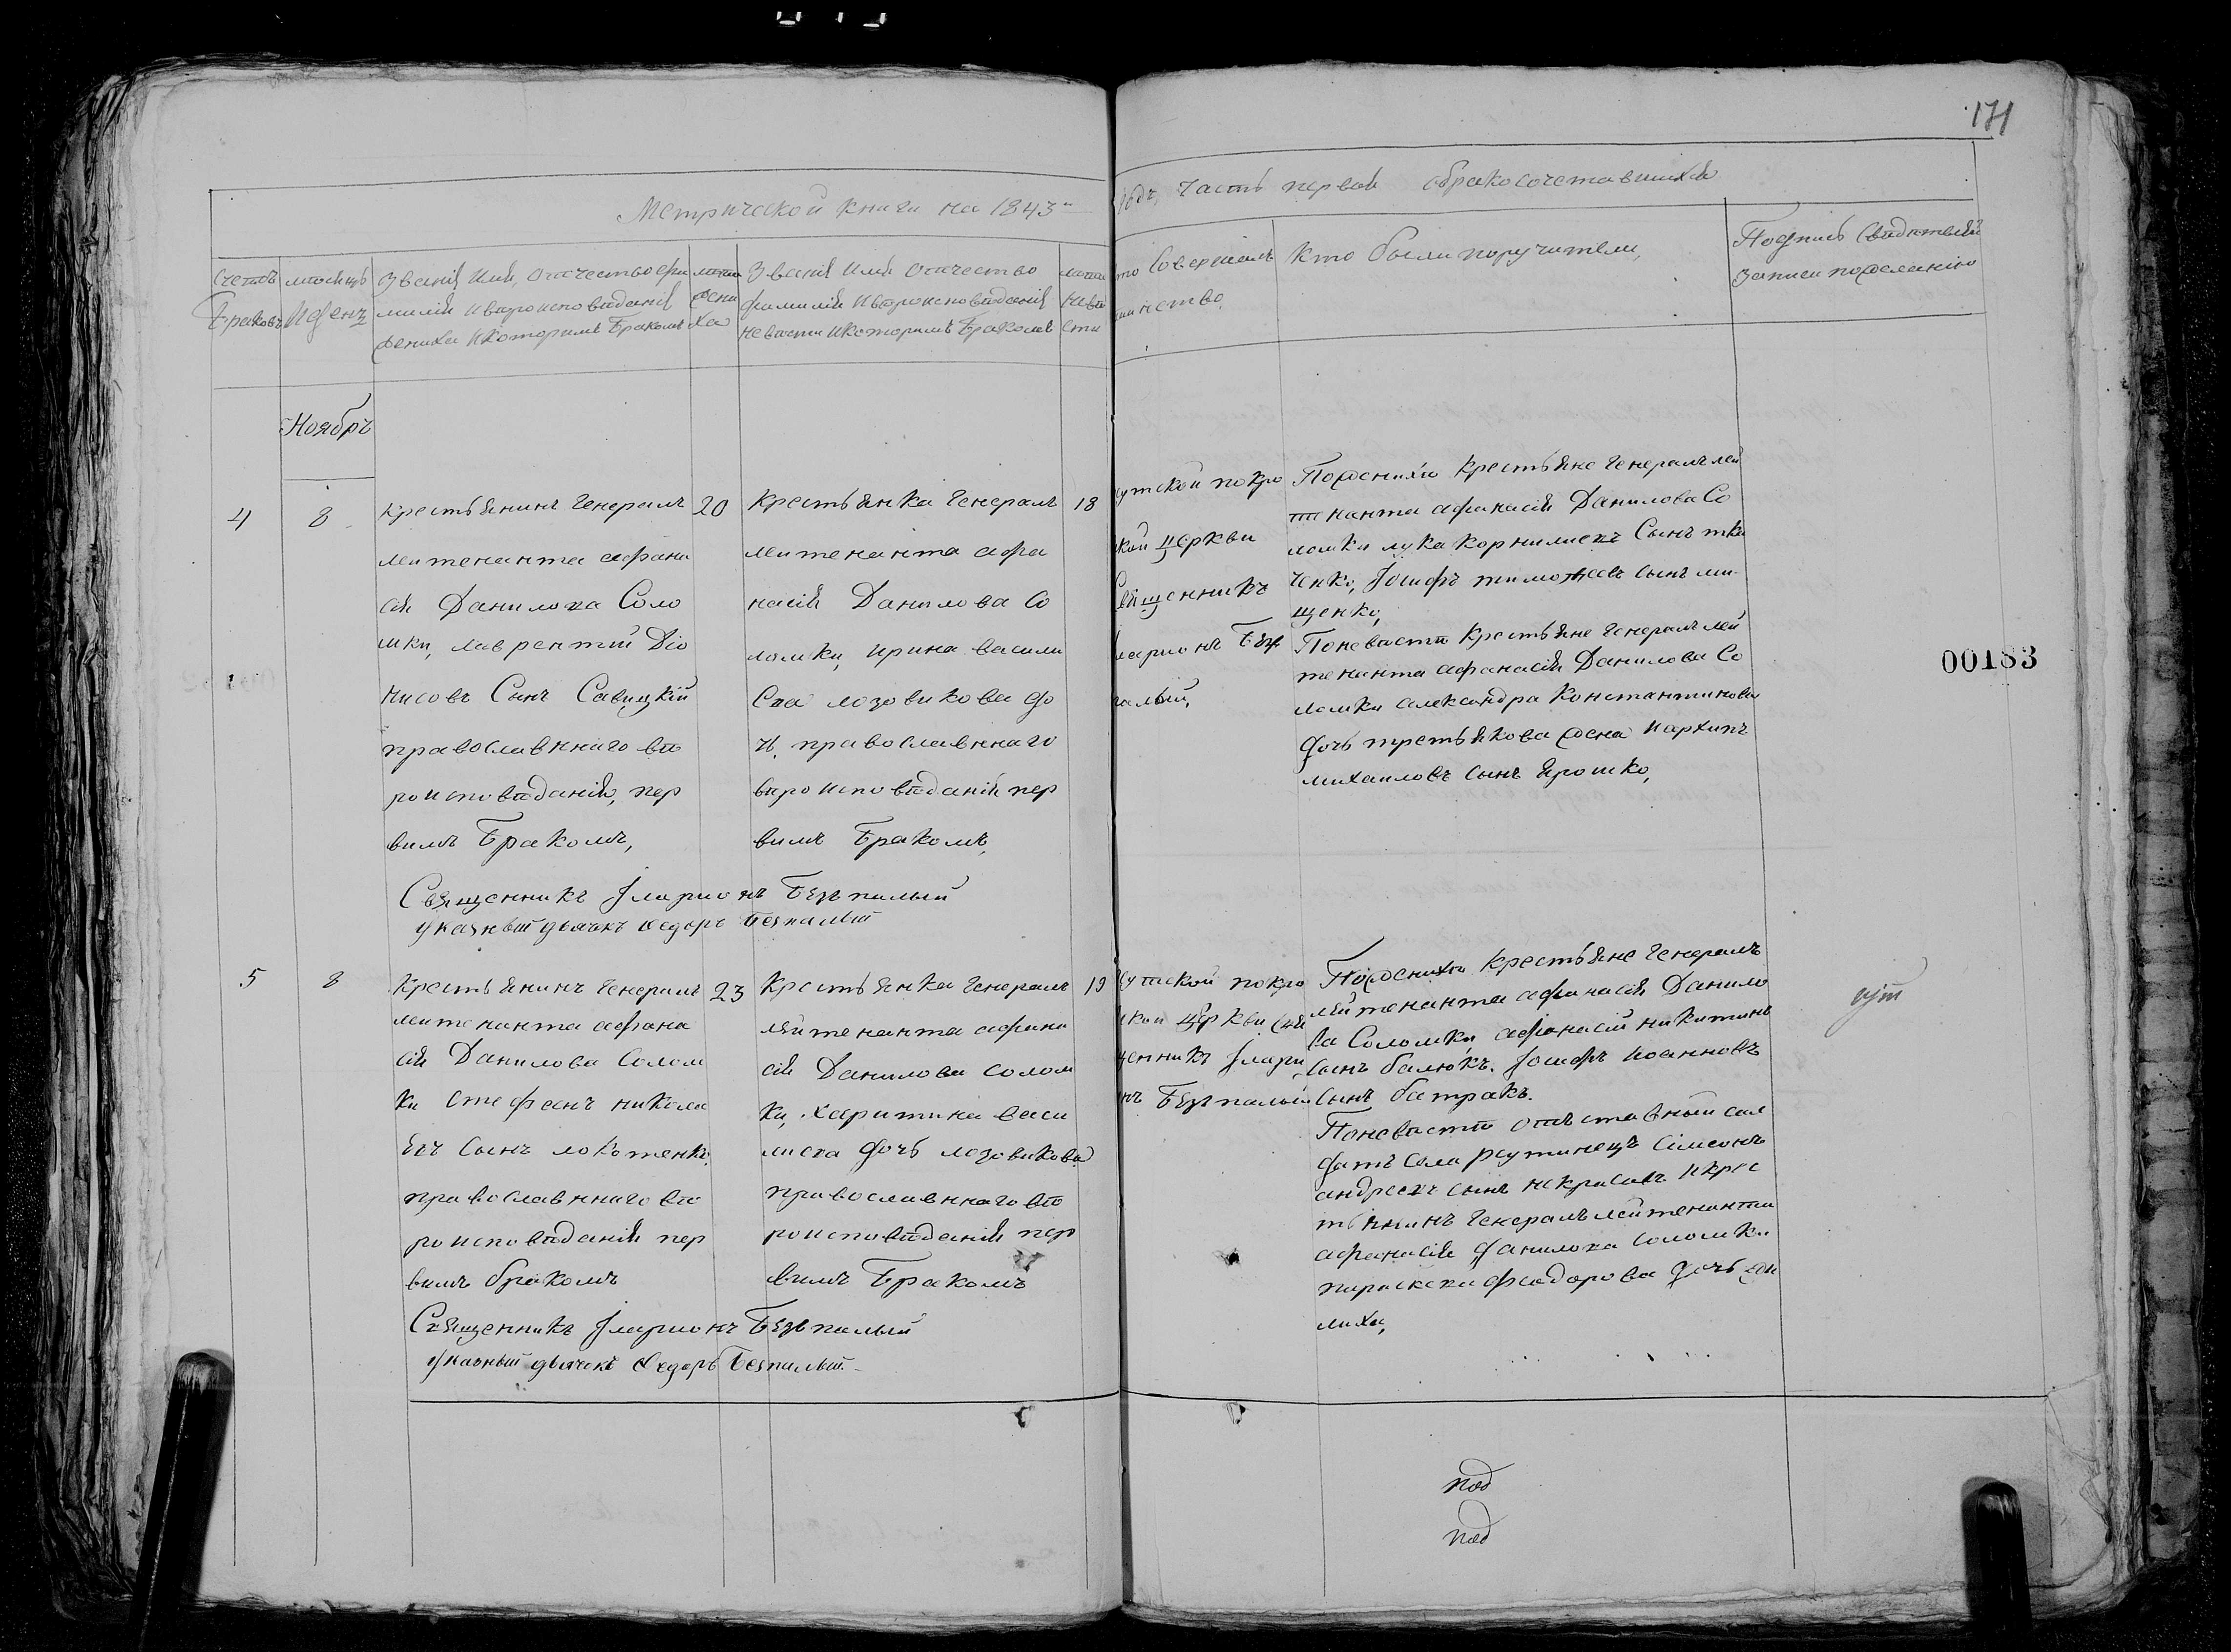 171
Метрической книги на 1843й
годъ, Часть первая о бракосочетавшихся
Счетъ
Браковъ
мѣсяцъ
И день
Званія Имя, отчество фа
милія и вѣроисповѣданія
жениха и которымъ Бракомъ
лѣта
жени
ха
Званія Имя отчество
фамилія и вѣроисповѣданія
невѣсти и которымъ Бракомъ
лѣта
невѣ
сти
то Совершалъ
инство
Кто были поручители,
Подпись Свидѣтелей
записи по желанію
Ноябрь
4
8
крестьянинъ Генералъ
лейтенанта афана
сія Данилова Соло
мки, лаврентий Діо
нисовъ Сынъ Савицкій
православннаго вѣ
роисповѣданія, пер
вимъ Бракомъ,
20
крестьянка Генералъ
лейтенанта афа
насія Данилова Со
ломки, ирина васили
ева лозовикова до
чь, православннаго
вѣроисповѣданія пер
вимъ Бракомъ,
18
утской покро
кой церкви
Священникъ
ларионъ Безъ
палый,
По женихѣ крестьяне Генералъ лей
тенанта афанасія Данилова Со
ломки лука корнилиевъ Сынъ тка
ченко, Іосифъ тимоѳеевъ сынъ ми-
щенко,
По невѣсти крестьяне Генералъ лей
тенанта афанасія Данилова Со
ломки александра Константинова
дочь третьякова жена и архипъ
михаиловъ сынъ Ярошко,
00183
Священникъ Іларионъ Безъпалый
указный дьячокъ Ѳедоръ Безпалый
5
8
Крестьянинъ Генералъ
лейтенанта афана
сія Данилова Солом
ки стефанъ никола
евъ сынъ локотенко,
православннаго вѣ
роисповѣданія пер
вимъ бракомъ
23
Крестьянка Генералъ
лейтенанта афана
сія Данилова солом
ки, харитина васи
лиева дочь лозовикова
православннаго вѣ
роисповѣданія пер
вимъ Бракомъ
19
утской покро
кой церкви свя
щенникъ Ілари
нъ Безъпалый
По женихѣ крестьяне Генералъ
лейтенанта афанасія Данило
ва Соломки, афанасій никитинъ
сынъ балюкъ. Іосифъ иоанновъ
сынъ батракъ.
По невѣсти отъставный сол
датъ села реутинецъ симеонъ
андреевъ сынъ некрасовъ и крес
тьянинъ Генералъ лейтенанта
афанасія данилова соломки
параскева феодорова дочь
Священникъ Іларионъ Безъпалый
указный дьячокъ Ѳедоръ Безпалый
под
под